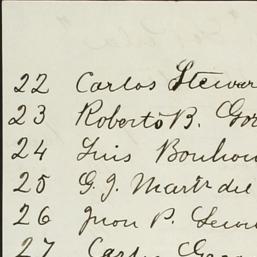 22 Carlos Stewar
23 Roberto B. Gor
24 Luis Bonhou
25 G. J. Martr del
26 Juon P. Lewi
27 Carlos